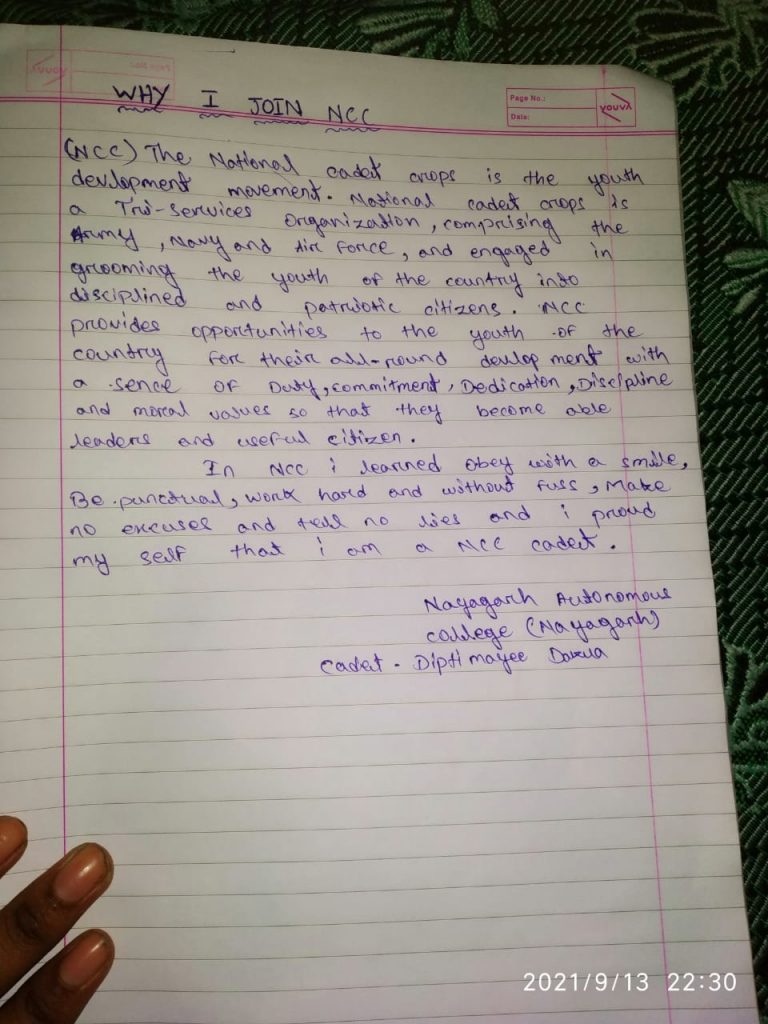 WHY I JOIN NCC
Page No.:
Date:
youva
(NCC) The National cadet crops is the youth
devlopment movement. National cadet crops is
a Tri-services Organization, comprising the
Army, Navy and Air Force, and engaged in
grooming the youth of the country into
disciplined and patriotic citizens. NCC
provides opportunities to the youth of the
country for their all-round devlopment with
a sence of Duty, commitment, Dedication, Discipline
and moral values so that they become able
leaders and useful citizen.
In NCC i learned obey with a smile,
Be punctual, work hard and without fuss, Make
no excuses and tell no lies and i proud
my self that i am a NCC cadet.
Nayagarh Autonomous
college (Nayagarh)
Cadet - Diptimayee Dakua
2021/9/13 22:30